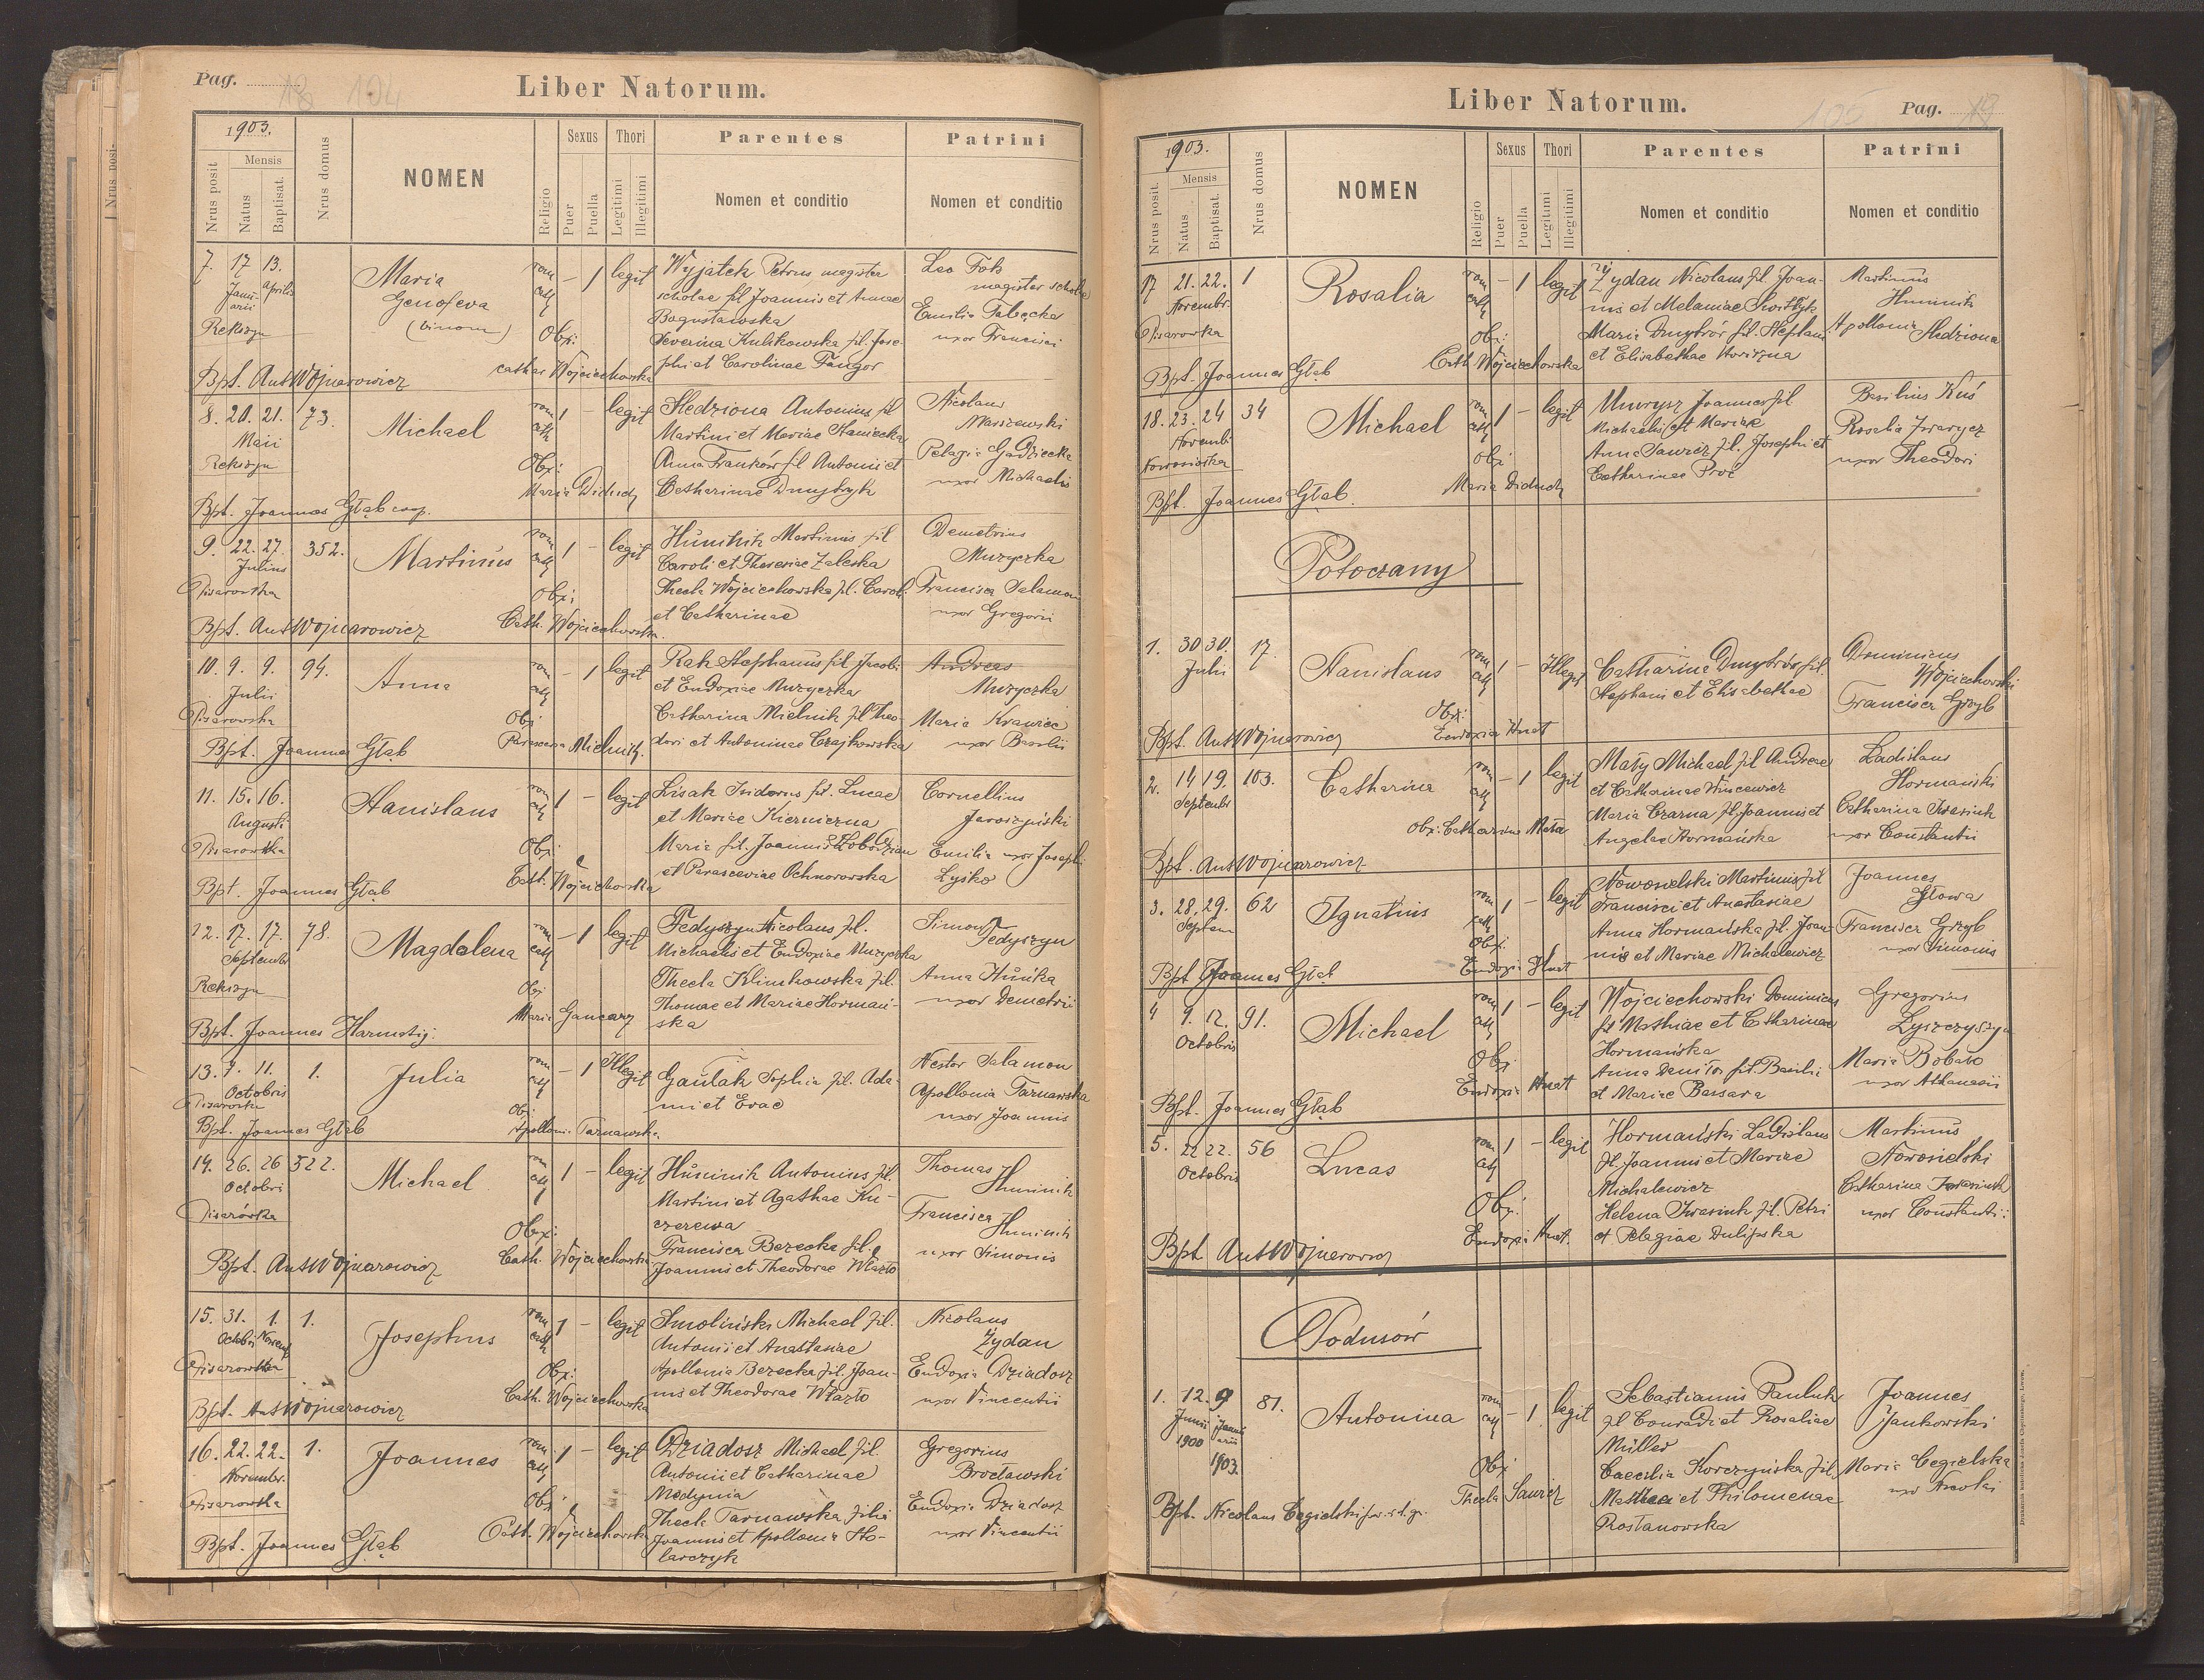 Pag. 18 104
Liber Natorum.
1903.
Nrus posit
Mensis
Natus
Baptisat.
Nrus domus
NOMEN
Religio
Sexus
Puer
Puella
Thori
Legitimi
Illegitimi
Parentes
Nomen et conditio
Patrini
Nomen et conditio
7. 17 13. Maria rom – 1 legit Wyjatek Petrus magister Leo Fok
Janu- Aprilis Genofeva cath scholae fil Joannis et Annae magister scholae
arii (binom) Bogustawska Emilia
Rekszyn Obx: Severina Kulikowska fil. Jose- uxor Francisci
cathar Wojciechowska phi et Carolinae Fangor
Bpt. Ant Wojnarowicz
8. 20. 21. 73. Michael rom 1 – legit Śledziona Antonius fil Nicolaus
Maii cath Martini et Mariae Haniecka Marszewski
Rekszyn Obx: Anna Franków fil Antonii et Pelagia Gadziecka
Maria Diduch Catharinae Dmytryk uxor Michaelis
Bpt. Joannes Głąb coop.
9. 22. 27. 352. Martinus rom 1 – legit Huminik Martinus fil Demetrius
Julius cath Caroli et Theresiae Zaleska Muzyczka
Pisarowka Obx: Thecla Wojciechowska fil. Caroli Francisca Salamon
Cath. Wojciechowska. et Catharinae uxor Gregorii
Bpt. Ant Wojnarowicz
10. 9. 9. 94. Anna rom – 1 legit Rak Stephanus fil Jacobi Andreas
Julii cath et Eudoxiae Muzyczka Muzyczka
Pisarowka Obx: Catharina Mielnik fil Theo- Maria Krawiec
Parascena Mielnik. dori et Antoninae Czajkowska uxor Basilii
Bpt. Joannes Głąb
11. 15. 16. Stanislaus rom 1 – legit Lisak Isidorus fil. Lucae Cornellius
Augusti cath et Mariae Kierniczna Jaroszyński
Pisarowka Obx: Maria fil. Joannis Łobodzian Emilia uxor Josephi
Cath. Wojciechowska et Parasceviae Ochnorowska Łyśko
Bpt. Joannes Głąb
12. 17. 17. 78. Magdalena rom – 1 legit Fedyszyn Nicolaus fil. Simon Fedyszyn
Septembr cath Michaelis et Eudoxiae Muzyczka
Rekszyn Obx Thecla Klimkowska fil. Anna Huńka
Maria Gancarz Thomae et Mariae Hormań- uxor Demetrii
ska
Bpt. Joannes Harmatij.
13. 7. 11. 1. Julia rom – 1 Illegit Gaulak Sophia fil. Ada- Nestor Salamon
Octobris cath mi et Evae Apollonia Tarnawska
Pisarowka Obx uxor Joannis
Bpt. Joannes Głąb Apollonia Tarnawska.
14. 26. 26 522. Michael rom 1 – legit Huminik Antonius fil. Thomas
Octobris cath Martini et Agathae Ku- Huminik
Pisarówka Obx: czerewa Francisca Huminik
Cath. Wojciechowska Francisca Berecka fil. uxor Simonis
Bpt. Ant Wojnarowicz Joannis et Theodorae Włazło
15. 31. 1. 1. Josephus rom 1 – legit Smoliński Michael fil. Nicolaus
Octobris Novemb cath Antonii et Anastasiae Żydan
Pisarowka Obx: Apollonia Berecka fil. Joan- Eudoxia Dziadosz
Cath. Wojciechowska nis et Theodorae Włazło uxor Vincentii
Bpt. Ant Wojnarowicz
16. 22. 22. 1. Joannes rom 1 – legit Dziadosz Michael fil. Gregorius
Novembr. cath Antonii et Catharinae Brocławski
Pisarowka Obx Medynia Eudoxia Dziadosz
Cath. Wojciechowska Thecla Tarnawska filia uxor Vincentii
Bpt. Joannes Głąb Joannis et Apollonia Sto-
larczyk
Liber Natorum.
105 Pag. 19
1903.
Nrus posit.
Mensis
Natus
Baptisat.
Nrus domus
NOMEN
Religio
Sexus
Puer
Puella
Thori
Legitimi
Illegitimi
Parentes
Nomen et conditio
Patrini
Nomen et conditio
17 21. 22. 1 Rosalia rom – 1 legit Żydan Nicolaus fil Joan- Martinus
Novembr. cath nis et Melaniae Huminik
Pisarowka Obx: Maria Dmytrów fil. Stephani Apollonia Śledziona
Cath Wojciechowska et Elisabethae
Bpt. Joannes Głąb
18. 23. 24 34 Michael rom 1 – legit Joannes fil Basilius Kuś
Novembr cath Michaelis et Mariae Rosalia Iwarycz
Nowosiołka Obx Anna Sawicz fil. Josephi et uxor Theodori
Maria Diduch Catharinae Proć
Bpt. Joannes Głąb.
Potoczany
1. 30 30. 17. Stanislaus rom 1 – Illegit Catharina Dmytrów fil. Dominicus
Julii cath Stephani et Elisabethae Wojciechowski
Obx: Francisca Grzyb
Bpt. Ant Wojnarowicz Eudoxia Hnat
2. 14 19. 103. Catharina rom – 1 legit Mały Michael fil Andreae Ladislaus
Septembr cath et Catharinae Wincewicz Hormański
Maria Czarna fil. Joannis et Catharina Iwasiuk
Obx: Catharina Mała Angelae Hormańska uxor Constantii
Bpt. Ant Wojnarowicz
3. 28. 29. 62 Ignatius rom 1 – legit Nowosielski Martinus fil Joannes
Septem cath Francisci et Anastasiae Głowa
Obx: Anna Hormańska fil. Joan- Francisca Grzyb
Eudoxia Hnat nis et Mariae Michalewicz uxor Simonis
Bpt Joannes Głąb
4 9. 12. 91. Michael rom 1 – legit Wojciechowski Dominicus Gregorius
Octobris cath fil Mathiae et Catharinae Łyszczyszyn
Obx: Hormańska Maria Bobało
Eudoxia Hnat Anna Daniłos fil. Basilii uxor Athanasii
Bpt. Joannes Głąb et Mariae Bassara
5. 22 22. 56 Lucas rom 1 – legit Hormański Ladislaus Martinus
Octobris cath fil. Joannis et Mariae Nowosielski
Michalewicz Catharina Iwasiuk
Obx: Helena Iwasiuk fil. Petri uxor Constantii
Eudoxia Hnat. et Pelagiae Dulipska
Bpt. Ant Wojnarowicz
Podusów
1. 12. 9 81. Antonina rom – 1 legit Sebastianus Pauluk Joannes
Junii Janu- cath fil Conradi et Rosaliae Jankowski
1900 arii Müller
1903. Obx: Caecilia Korczyńska fil. Maria Cegielska
Thecla Sawicz Mathei et Philomenae uxor Nicolai
Bpt. Nicolaus Cegielski Rostanowska